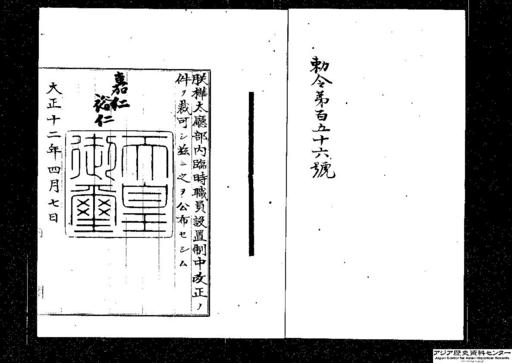 勅令第百五十六號
朕樺太廳部内臨時職員設置制中改正ノ
件ヲ裁可シ茲ニ之ヲ公布セシム
嘉仁
裕仁
天皇
御璽
大正十二年四月七日
アジア歴史資料センター
Japan Center for Asian Historical Records